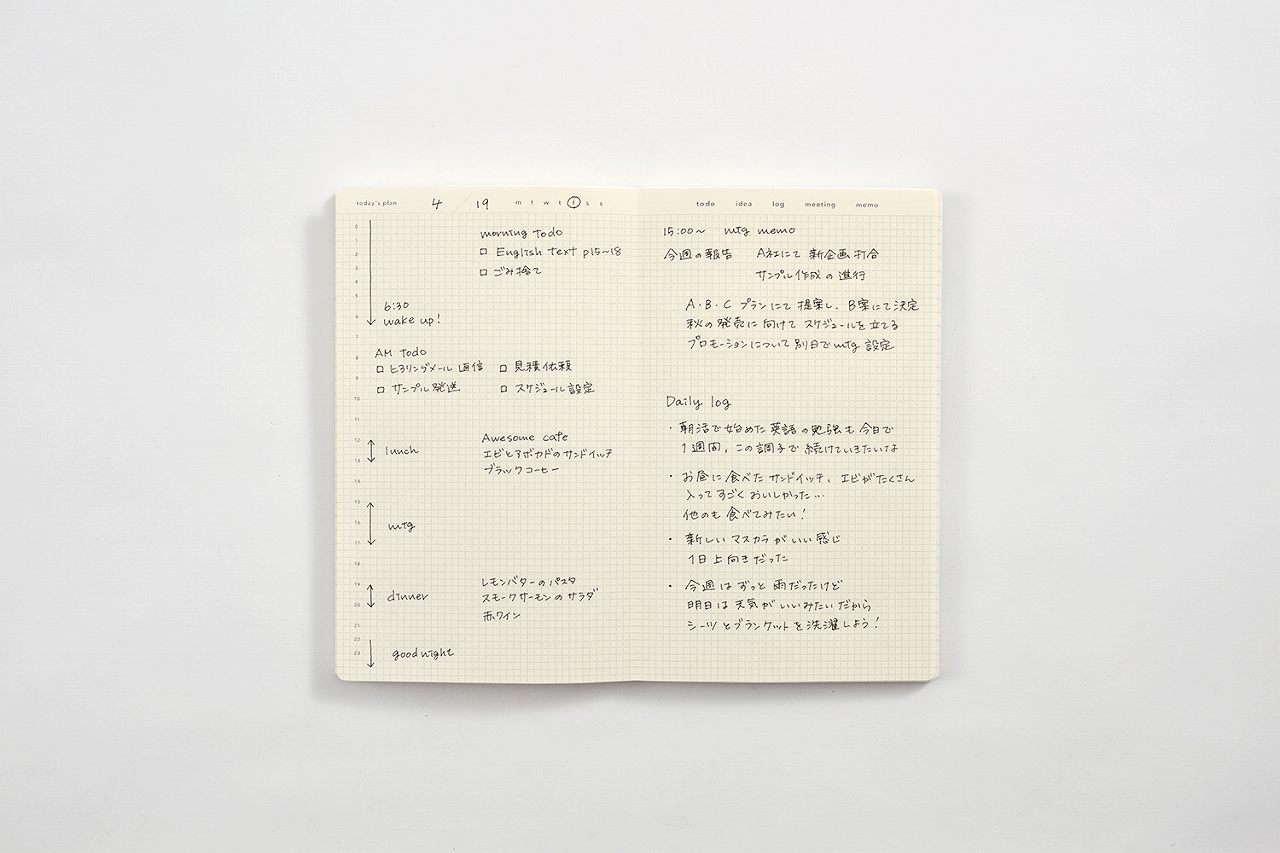 today's plan 4 / 19 m t w t f s s
0
1
2
3
4
5
6
7
8
9
10
11
12
13
14
15
16
17
18
19
20
21
22
23
morning todo
□ English text p15~18
□ ごみ捨て
6:30
wake up!
AM todo
□ ヒアリングメール 返信 □ 見積依頼
□ サンプル発送 □ スケジュール設定
lunch
Awesome cafe
エビとアボカドのサンドイッチ
ブラックコーヒー
mtg
dinner
レモンバターのパスタ
スモークサーモンのサラダ
赤ワイン
good night
todo idea log meeting memo
15:00~ mtg memo
今週の報告 A社にて 新企画打合
サンプル作成の進行
A・B・C プランにて提案し、B案にて決定
秋の発売に向けてスケジュールを立てる
プロモーションについて別日でmtg設定
Daily log
・朝活で始めた英語の勉強も今日で
1週間、この調子で続けていきたいな
・お昼に食べたサンドイッチ、エビがたくさん
入ってすごくおいしかった…
他のも食べてみたい!
・新しいマスカラがいい感じ
1日上向きだった
・今週はずっと雨だったけど
明日は天気がいいみたいだから
シーツとブランケットを洗濯しよう!